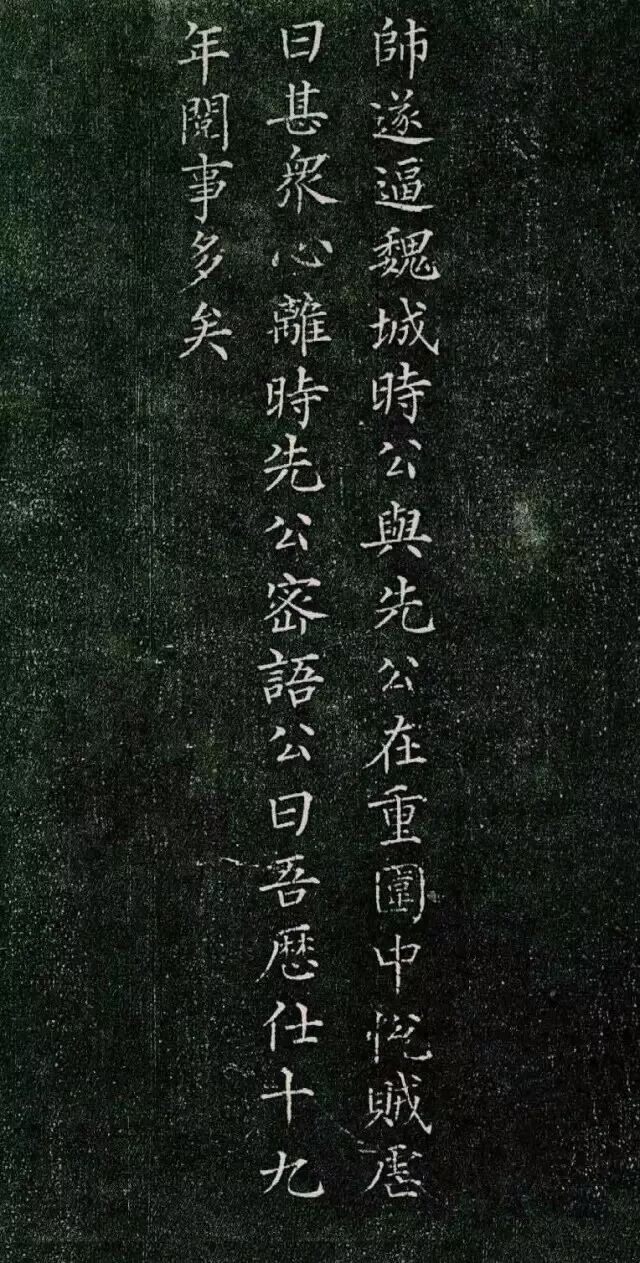 帥遂逼魏城時公與先公在重圍中悅賊虐
曰甚眾心離時先公密語公曰吾歷仕十九
年閱事多矣